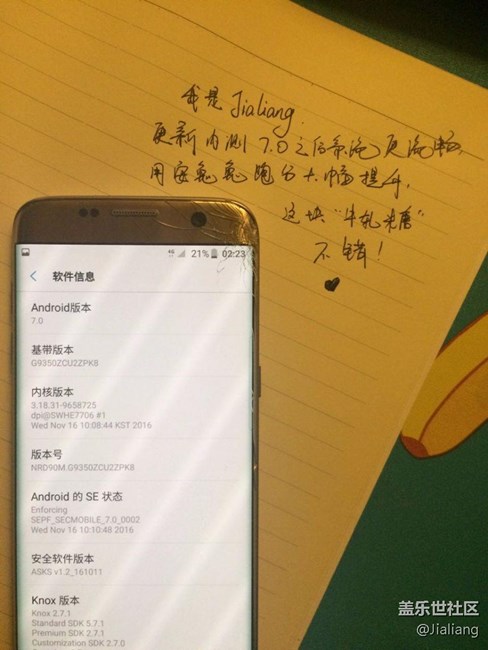 我是Jialiang.
更新内测7.0之后系统更流畅,
用安兔兔跑分大幅提升,
这块"牛轧糖"
不错!
4G 21% 02:23
软件信息
Android版本
7.0
基带版本
G9350ZCU2ZPK8
内核版本
3.18.31-9658725
dpi@SWHE7706 #1
Wed Nov 16 10:08:44 KST 2016
版本号
NRD90M.G9350ZCU2ZPK8
Android 的 SE 状态
Enforcing
SEPF_SECMOBILE_7.0_0002
Wed Nov 16 10:10:48 2016
安全软件版本
ASKS v1.2_161011
Knox 版本
Knox 2.7.1
Standard SDK 5.7.1
Premium SDK 2.7.1
Customization SDK 2.7.0
盖乐世社区
@Jialiang